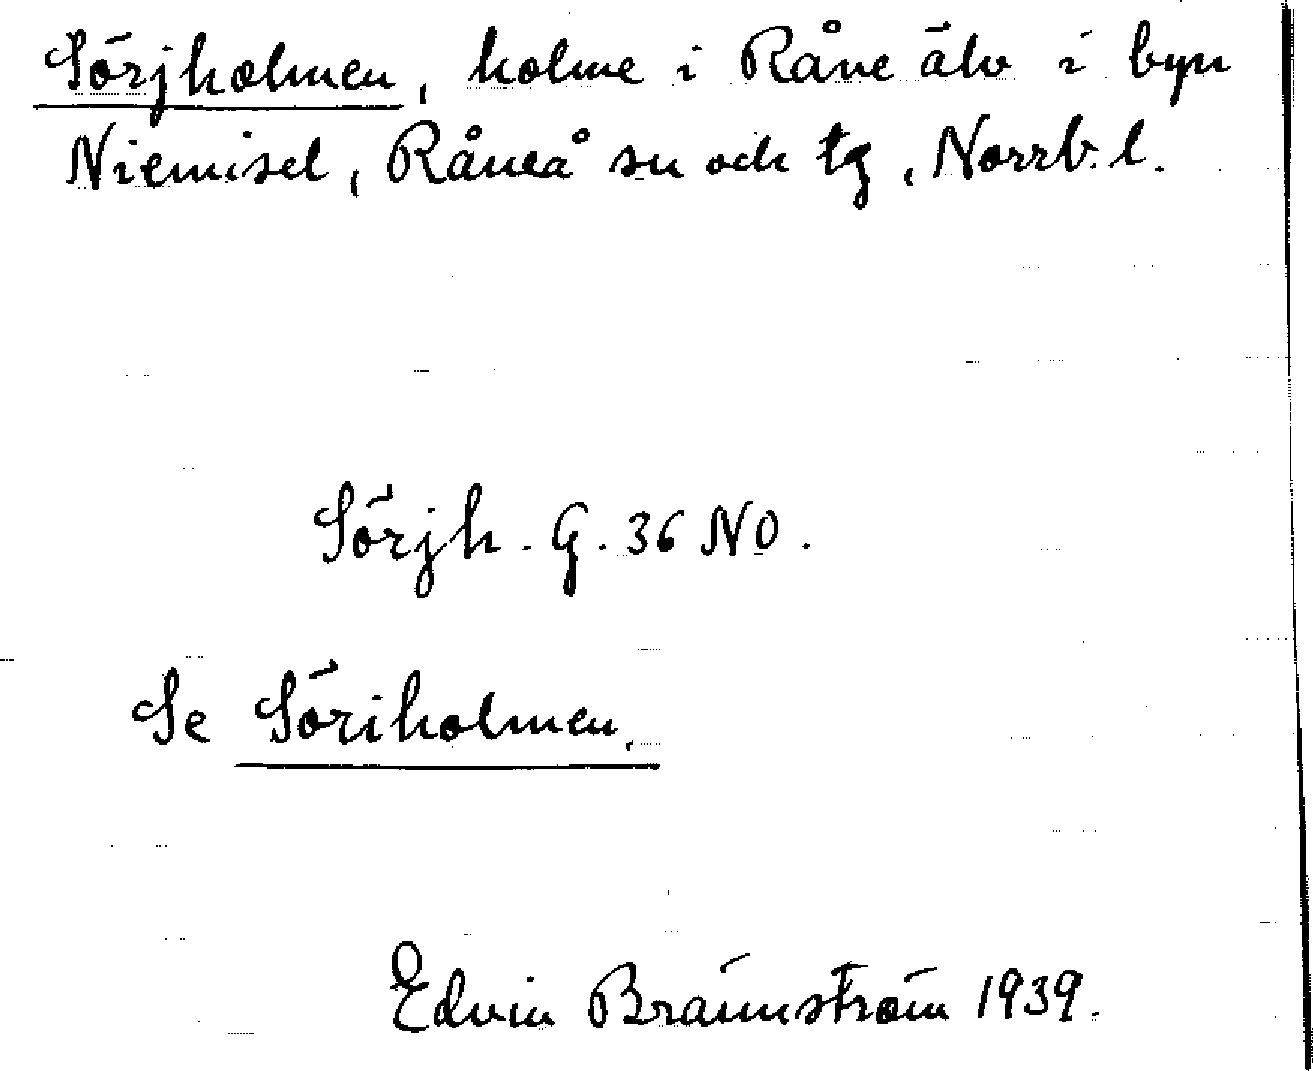 Sörjholmen, holme i Råne älv i byn
Niemisel, Råneå sn och tg, Norrb. l.
Sörjh. G. 36 NO.
Se Söriholmen.
Edvin Brännström 1939.